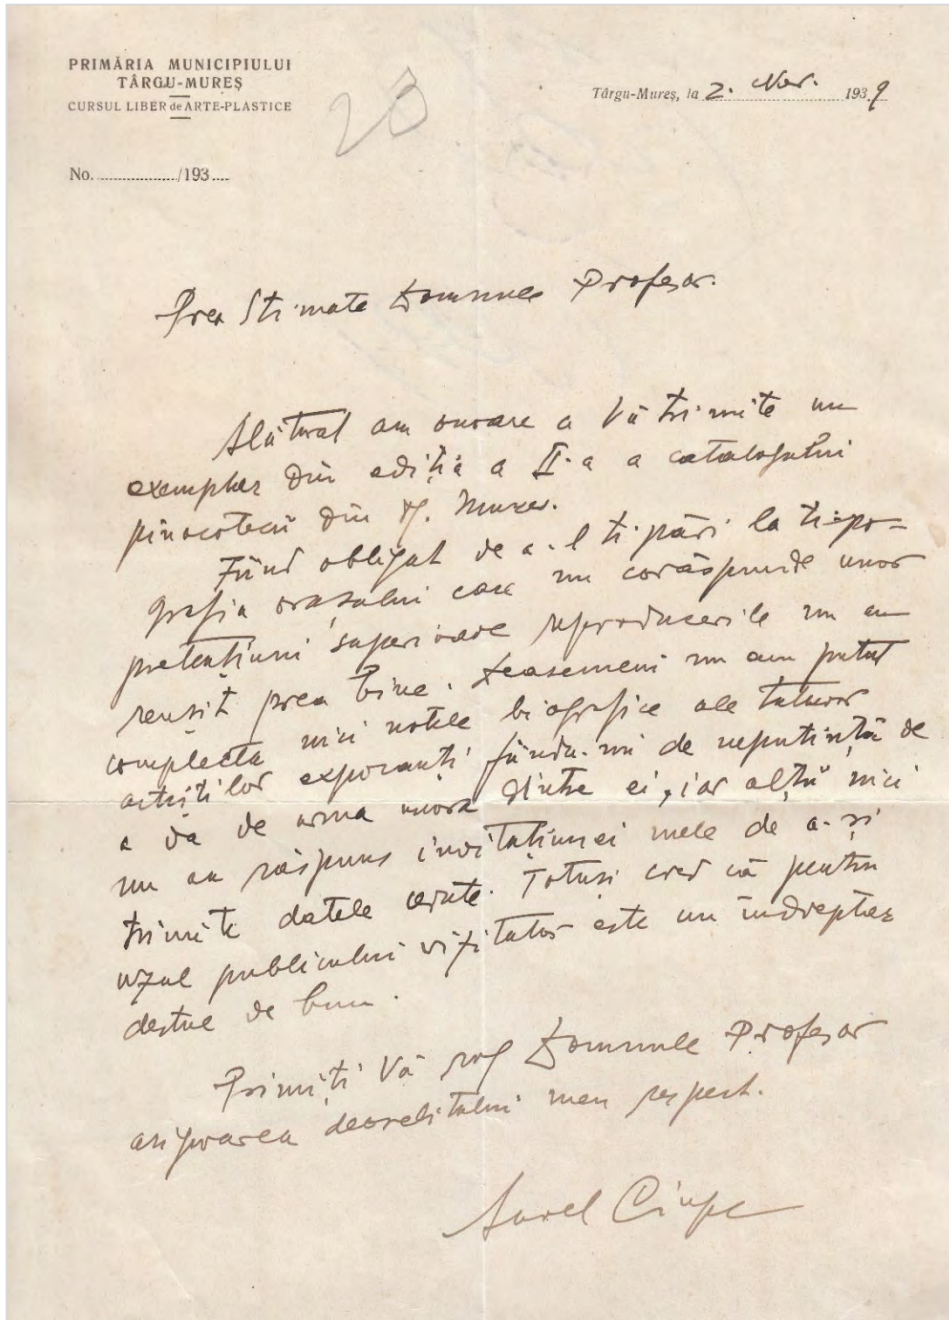 PRIMĂRIA MUNICIPIULUI
TÂRGU-MUREȘ
CURSUL LIBER de ARTE-PLASTICE
No. ................../193....
23
Târgu-Mureș, la 2. Nov. 1939
Prea Stimate Domnule Profesor.
Alăturat am onoare a Vă trimite un
exemplar din ediția a II-a a catalogului
pinacotecii din Tg. Mureș.
Fiind obligat de a-l tipări la tipo=
grafia orașului care nu corăspunde unor
pretențiuni superioare reproducerile nu au
reușit prea bine. Deasemeni nu am putut
complecta nici notele biografice ale tuturor
artiștilor expozanți fiindu-mi de neputință de
a da de urma unora dintre ei, iar alții nici
nu au răspuns invitațiunei mele de a-și
trimite datele cerute. Totuși cred că pentru
uzul publicului vizitator este un îndreptar
destul de bun.
Primiți Vă rog Domnule Profesor
asigurarea deosebitului meu respect.
Aurel Ciupe